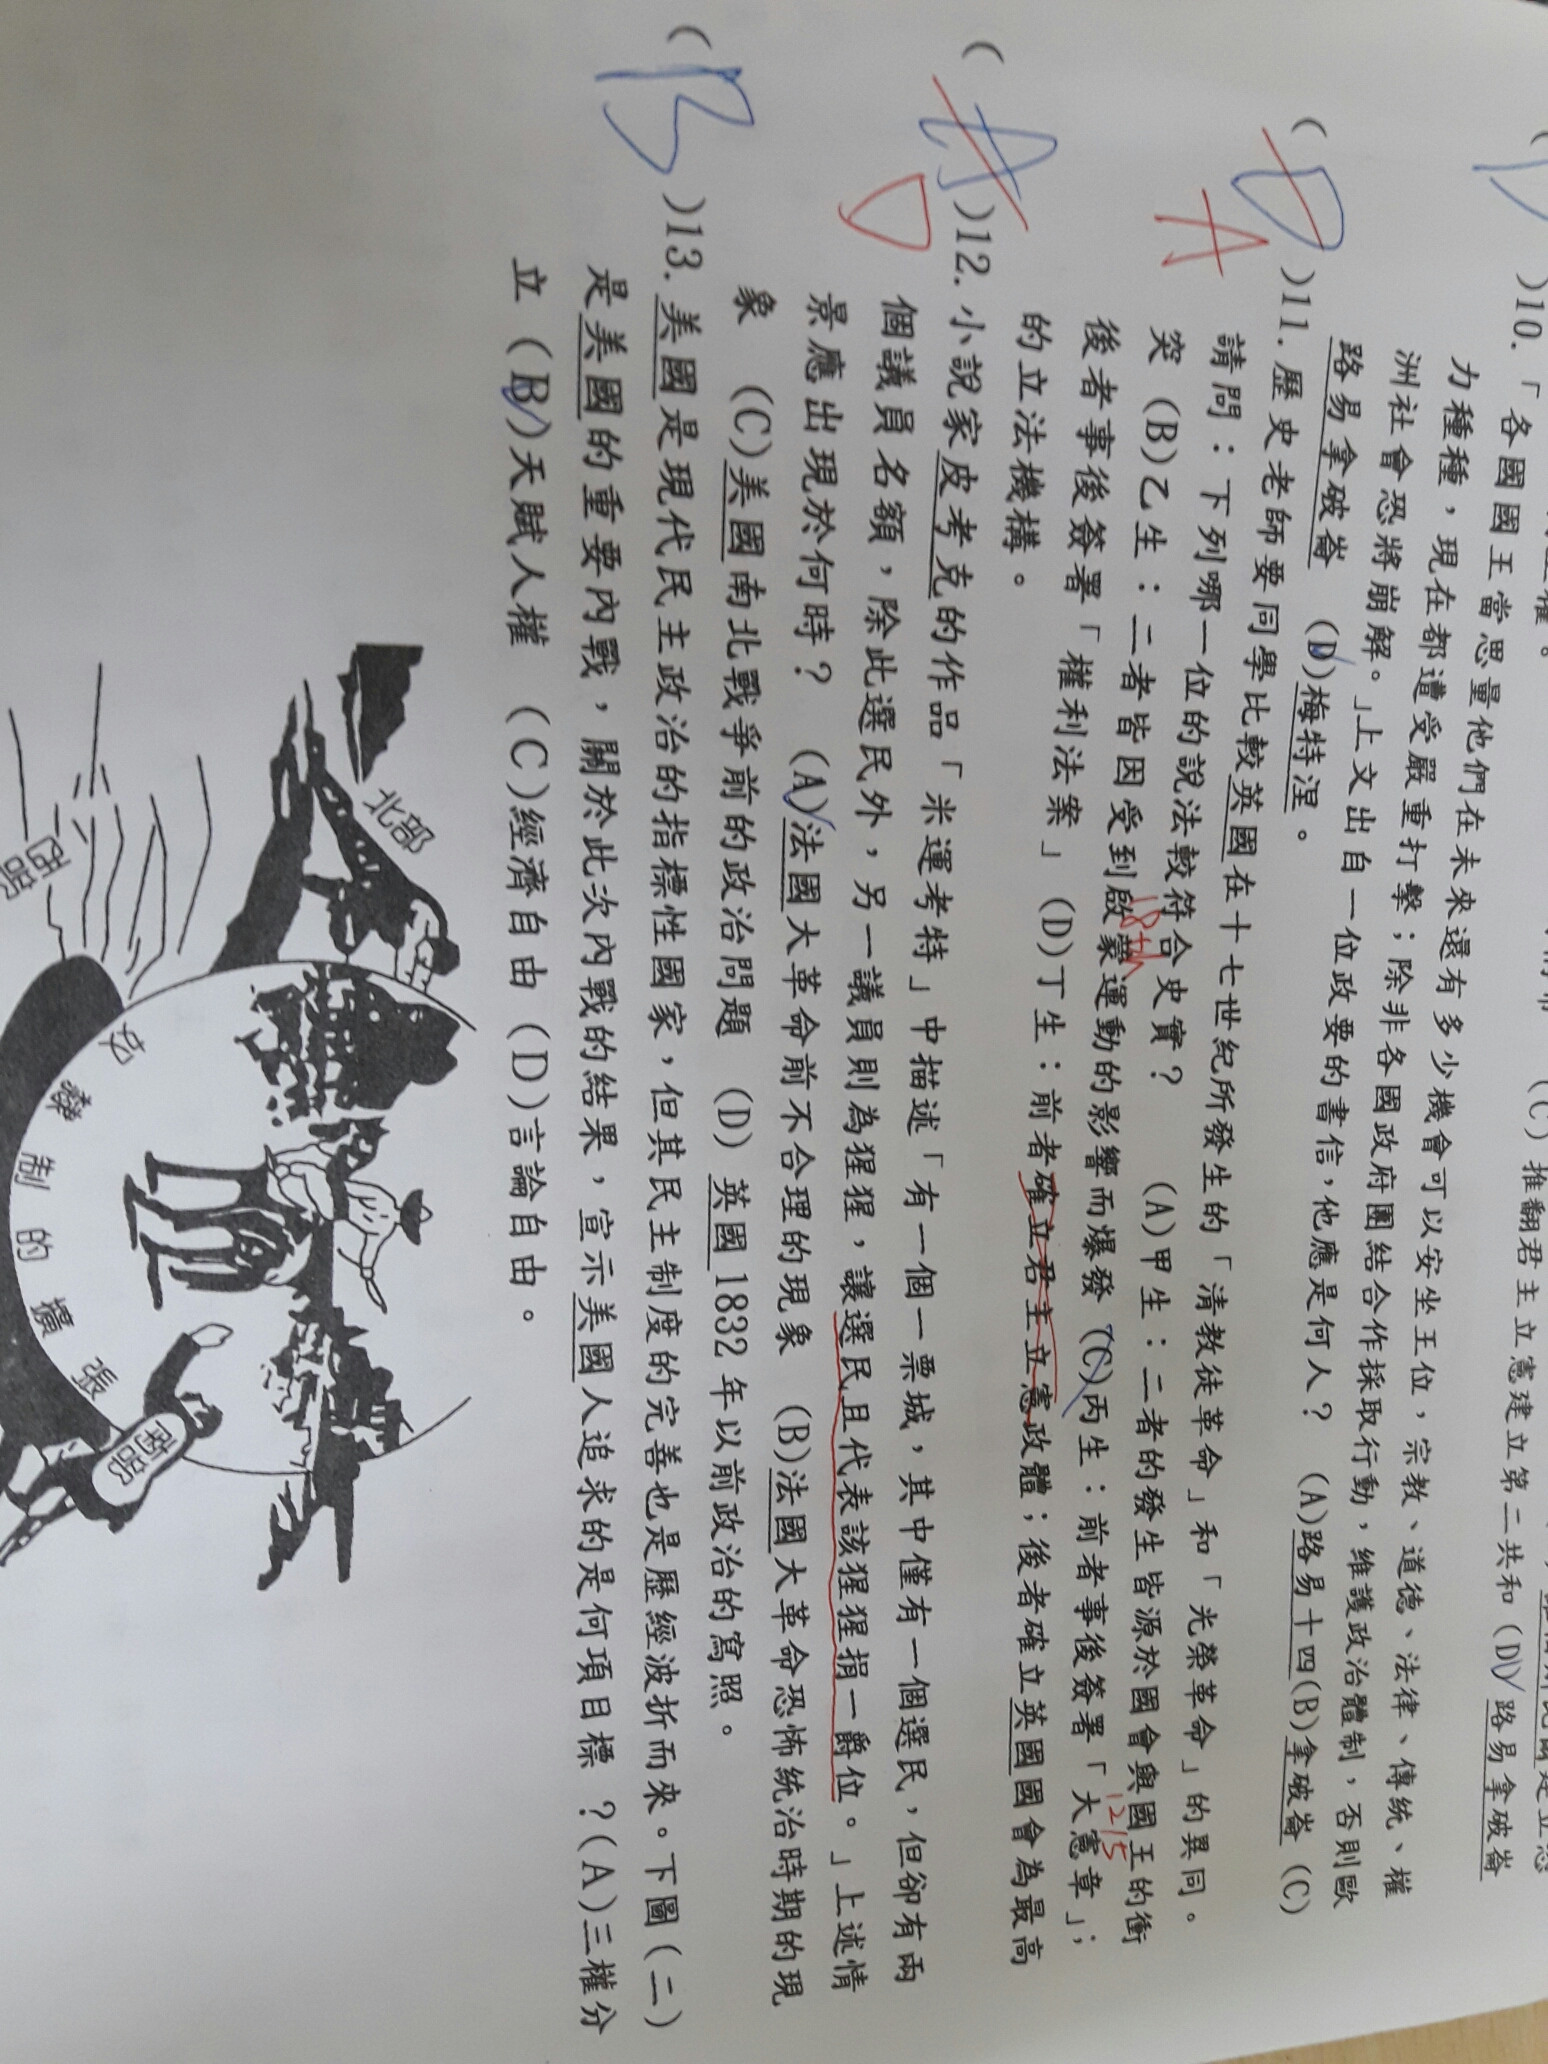 (D)10.「各國國王當思量他們在未來還有多少機會可以安坐王位，宗教、道德、法律、傳統、權
力種種，現在都遭受嚴重打擊；除非各國政府團結合作採取行動，維護政治體制，否則歐
洲社會恐將崩解。」上文出自一位政要的書信，他應是何人？ (A)路易十四(B)拿破崙 (C)
路易拿破崙 (D)梅特涅。
(D A)11.歷史老師要同學比較英國在十七世紀所發生的「清教徒革命」和「光榮革命」的異同。
請問：下列哪一位的說法較符合史實？ (A)甲生：二者的發生皆源於國會與國王的衝
突 (B)乙生：二者皆因受到啟蒙運動的影響而爆發 (C)丙生：前者事後簽署「大憲章」；
後者事後簽署「權利法案」 (D)丁生：前者確立君主立憲政體；後者確立英國國會為最高
的立法機構。
1215
(A D)12.小說家皮考克的作品「米運考特」中描述「有一個一票城，其中僅有一個選民，但卻有兩
個議員名額，除此選民外，另一議員則為猩猩，讓選民且代表該猩猩捐一爵位。」上述情
景應出現於何時？ (A)法國大革命前不合理的現象 (B)法國大革命恐怖統治時期的現
象 (C)美國南北戰爭前的政治問題 (D) 英國1832年以前政治的寫照。
(B)13.美國是現代民主政治的指標性國家，但其民主制度的完善也是歷經波折而來。下圖(二)
是美國的重要內戰，關於此次內戰的結果，宣示美國人追求的是何項目標 ？(A)三權分
立 (B)天賦人權 (C)經濟自由 (D)言論自由。
北部
西部
奴隸制的擴張
南部
(C)推翻君主立憲建立第二共和 (D)路易拿破崙